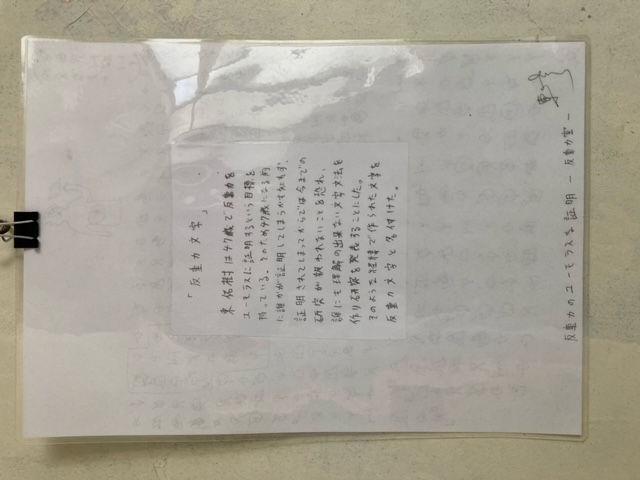 「反重力文字」
東 佑樹は47歳で反重力を
ユーモラスに証明するという目標を
持っている。そのため47歳になる前
に誰かが証明してしまうかも知れず、
証明されてしまってからでは今までの
研究が報われないことを恐れ、
誰にも理解の出来ない文字文法を
作り研究を発表することにした。
そのような経緯で作られた文字を
反重力文字と名付けた。
反重力のユーモラスな証明 ー 反重力室 ー